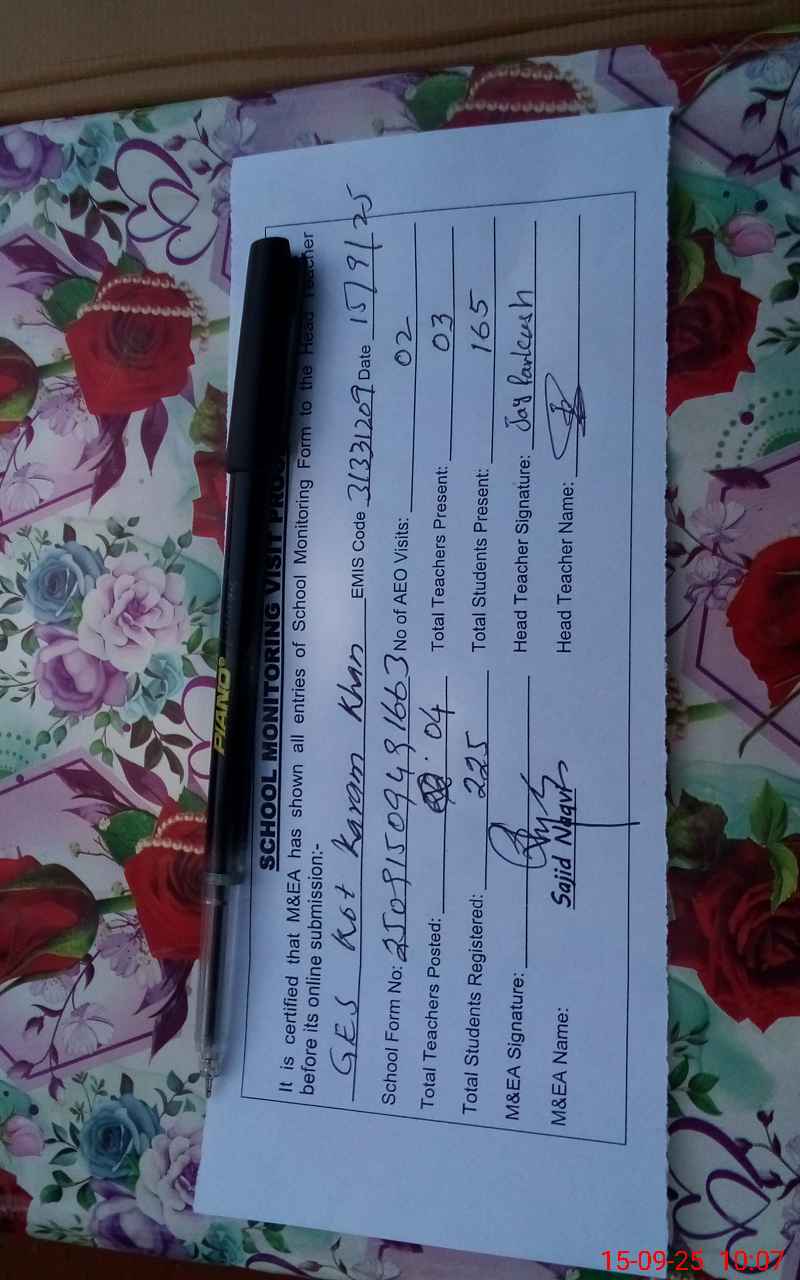 SCHOOL MONITORING VISIT
It is certified that M&EA has shown all entries of School Monitoring Form to the Head Teacher
before its online submission:-
GES Kot Karam Khan EMIS Code 31331209 Date 15/9/25
School Form No: 2509150949 1663 No of AEO Visits: 02
Total Teachers Posted: 04 Total Teachers Present: 03
Total Students Registered: 225 Total Students Present: 165
M&EA Signature: Head Teacher Signature: Jay Parkash
M&EA Name: Sajid Naqvi Head Teacher Name:
PIANO
15-09-25 10:07